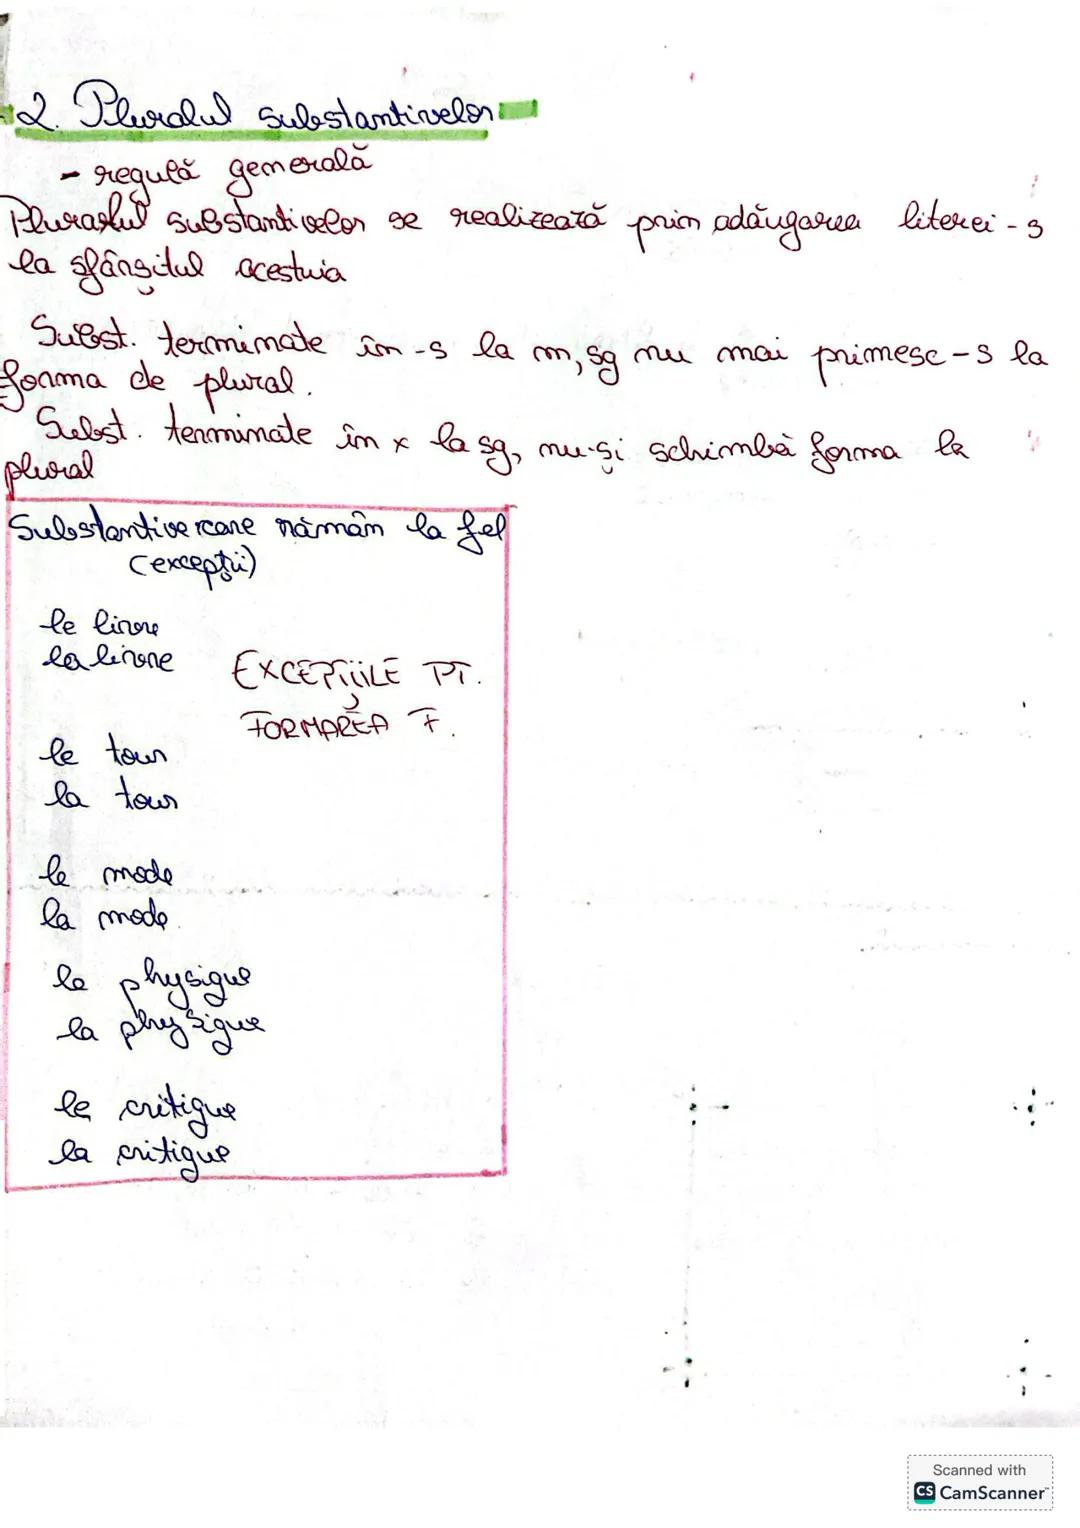 2. Pluralul substantivelor
- regulă generală
Pluraslul substantivelor se realizează prin adăugarea literei -s
la sfârșitul acestuia
Subst. terminate în -s la m, sg nu mai primesc -s la
forma de plural.
Subst. terminate în x la sg, nu-și schimbă forma la
plural
Substantive care rămân la fel
(excepții)
le livre
la livre
EXCEPȚIILE PT.
FORMAREA F.
le tour
la tour
le mode
la mode
le physique
la physique
le critique
la critique
Scanned with
CS CamScanner